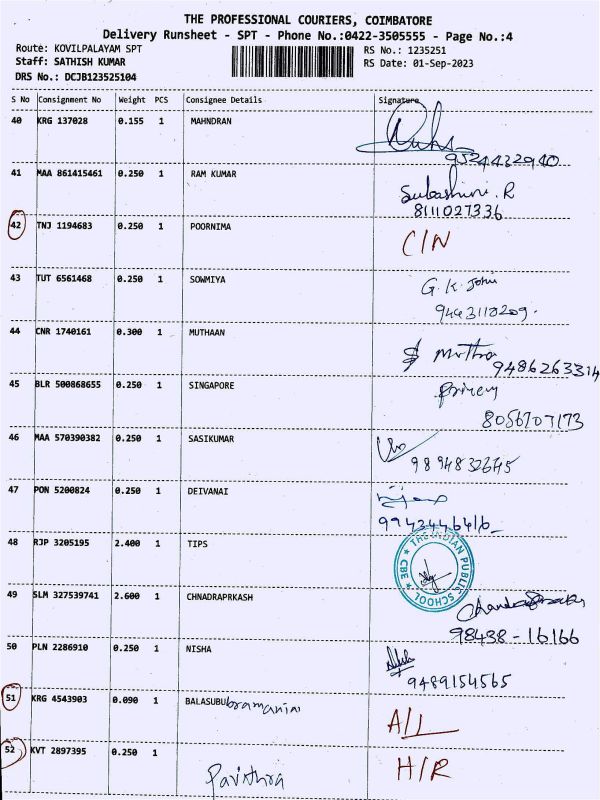 THE PROFESSIONAL COURIERS, COIMBATORE
Delivery Runsheet - SPT - Phone No.:0422-3505555 - Page No.:4
Route: KOVILPALAYAM SPT RS No.: 1235251
Staff: SATHISH KUMAR RS Date: 01-Sep-2023
DRS No.: DCJB123525104
S No Consignment No Weight PCS Consignee Details Signature
40 KRG 137028 0.155 1 MAHNDRAN
9524432940
41 MAA 861415461 0.250 1 RAM KUMAR
Subashini. R
8111027336
42 TNJ 1194683 0.250 1 POORNIMA C/N
43 TUT 6561468 0.250 1 SOWMIYA G. K. John
9443110209.
44 CNR 1740161 0.300 1 MUTHAAN
Muthu
9486263314
45 BLR 500868655 0.250 1 SINGAPORE
8056707173
46 MAA 570390382 0.250 1 SASIKUMAR
9894832645
47 PON 5200824 0.250 1 DEIVANAI
9943446416
48 RJP 3205195 2.400 1 TIPS
THE INDIAN PUBLIC SCHOOL CBE
49 SLM 327539741 2.600 1 CHNADRAPRKASH
98438-16166
50 PLN 2286910 0.250 1 NISHA
9489154565
51 KRG 4543903 0.090 1 BALASUBUbramanian A/L
52 KVT 2897395 0.250 1 H/R
Pavithra